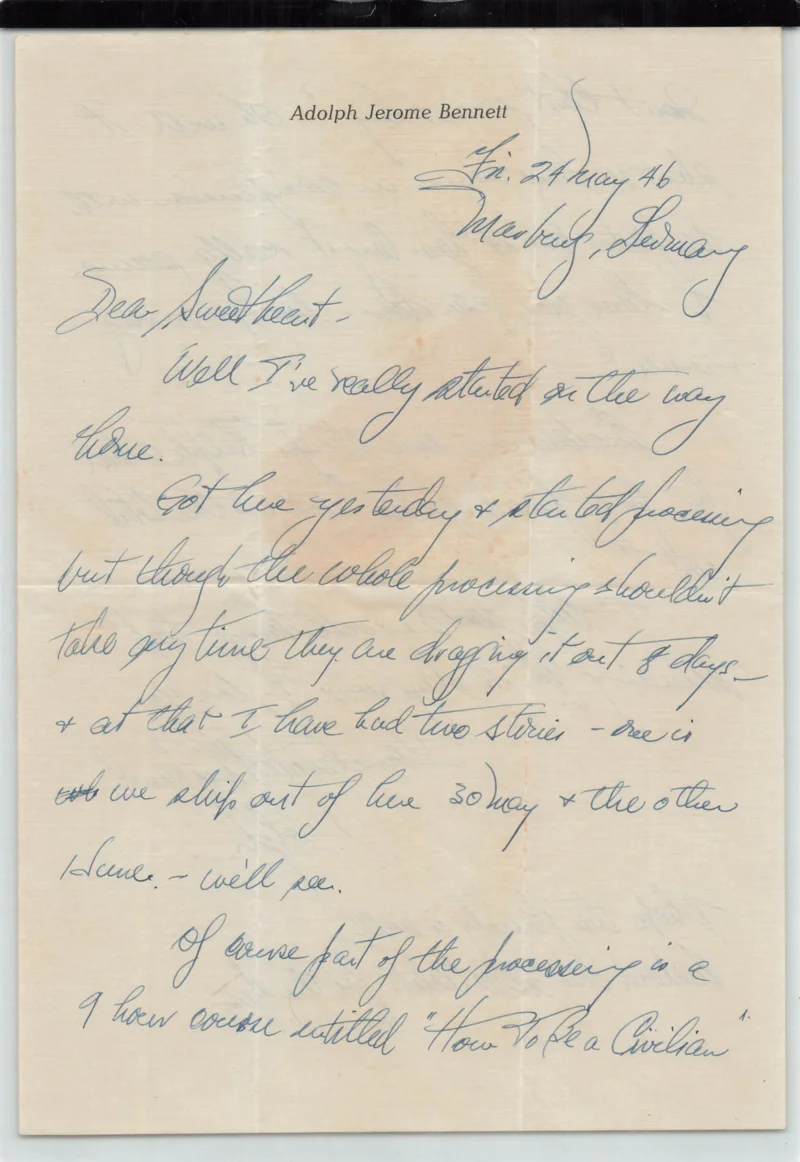 Adolph Jerome Bennett
Fri. 24 May 46
Marburg, Germany
Dear Sweetheart -
Well I've really started on the way
home.
Got here yesterday & started processing
but though the whole processing shouldn't
take any time they are dragging it out 8 days -
& at that I have had two stories - one is
we ship out of here 30 May & the other
1 June. - we'll see.
Of course part of the processing is a
9 hour course entitled "How To Be a Civilian".